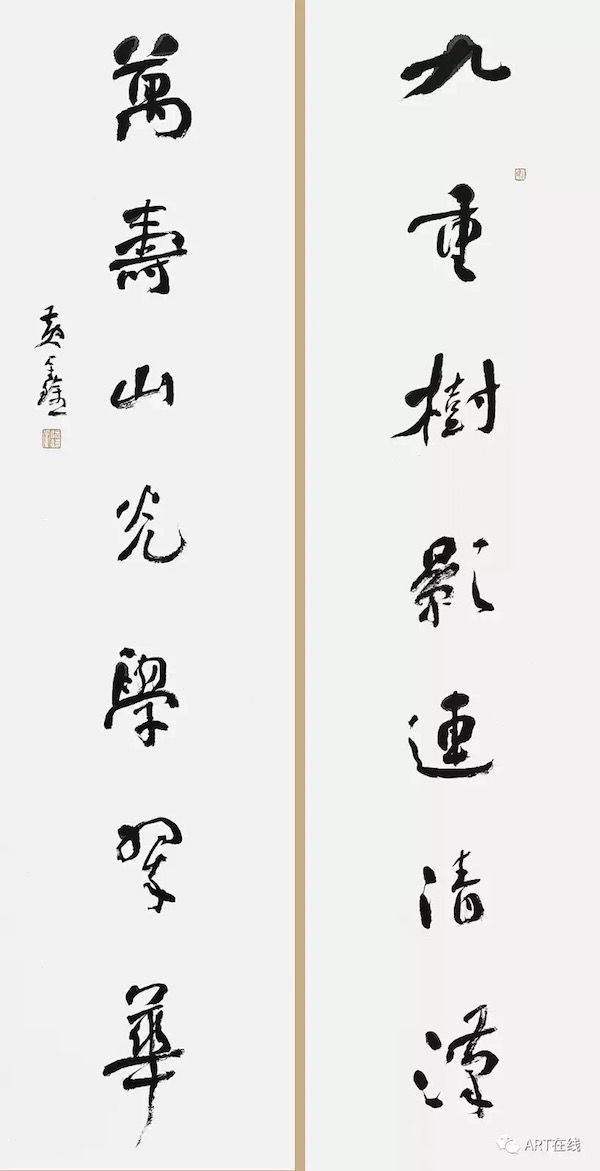 九重樹影連清漢
萬壽山光學翠華
ART在线